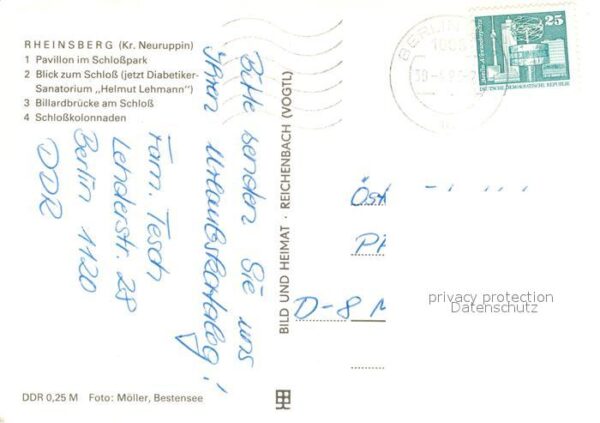 RHEINSBERG (Kr. Neuruppin)
1 Pavillon im Schloßpark
2 Blick zum Schloß (jetzt Diabetiker-
Sanatorium „Helmut Lehmann")
3 Billardbrücke am Schloß
4 Schloßkolonnaden
Bitte senden Sie uns
Ihren Urlaubskatalog!
Fam. Tesch
Lehderstr. 28
Berlin 1120
DDR
BILD UND HEIMAT · REICHENBACH (VOGTL)
BERLIN
25
Berlin-Alexanderplatz
DEUTSCHE DEMOKRATISCHE REPUBLIK
Öst
D-8 M
privacy protection
Datenschutz
DDR 0,25 M Foto: Möller, Bestensee